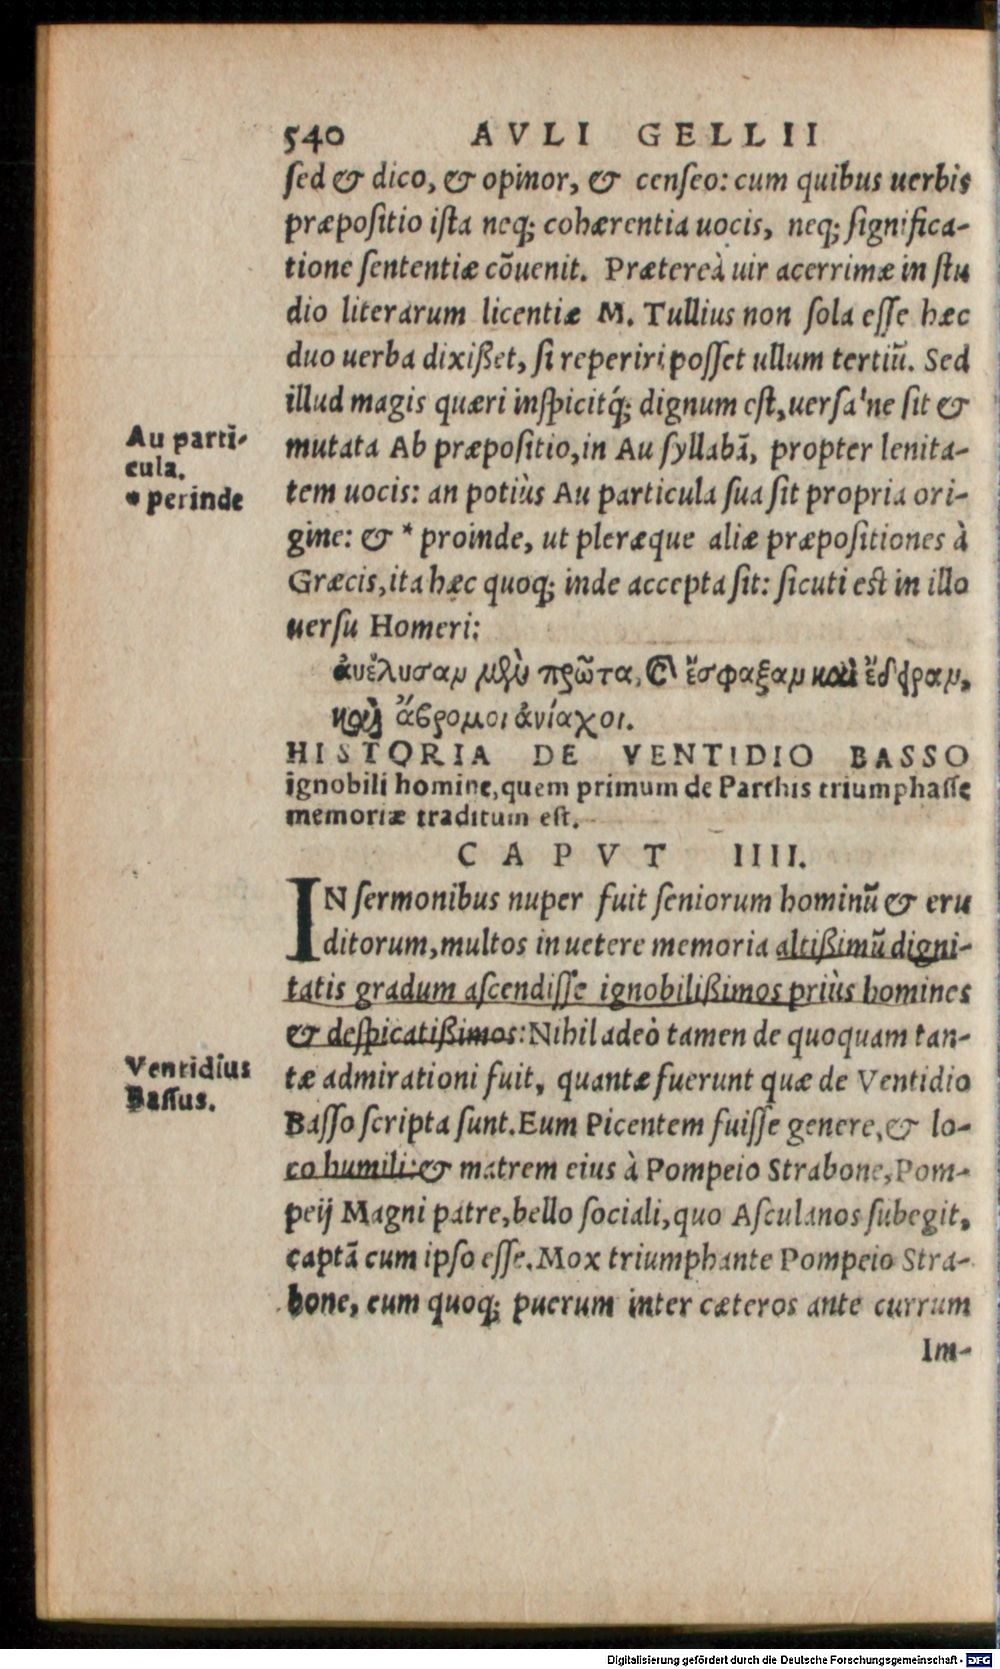 540 AVLI GELLII
sed & dico, & opinor, & censeo: cum quibus uerbis
præpositio ista neq; cohærentia uocis, neq; significa-
tione sententiæ cõuenit. Prætereà uir acerrimæ in stu
dio literarum licentiæ M. Tullius non sola esse hæc
duo uerba dixißet, si reperiri posset ullum tertiũ. Sed
illud magis quæri inspiciq́; dignum est, uersa'ne sit &
Au parti-
cula.
* perinde
mutata Ab præpositio, in Au syllabã, propter lenita-
tem uocis: an potiùs Au particula sua sit propria ori-
gine: & * proinde, ut pleræque aliæ præpositiones à
Græcis, ita hæc quoq; inde accepta sit: sicuti est in illo
uersu Homeri:
ἀυέλυσαν μὲν πρῶτα, καὶ ἔσφαξαν καὶ ἔδειραν,
καὶ ἄβρομοι ἀνίαχοι.
HISTORIA DE VENTIDIO BASSO
ignobili homine, quem primum de Parthis triumphasse
memoriæ traditum est.
CAPVT IIII.
IN sermonibus nuper fuit seniorum hominũ & eru
ditorum, multos in uetere memoria altißimũ digni-
tatis gradum ascendisse ignobilißimos priùs homines
& despicatißimos: Nihil adeò tamen de quoquam tan-
Ventidius
Bassus.
tæ admirationi fuit, quantæ fuerunt quæ de Ventidio
Basso scripta sunt. Eum Picentem fuisse genere, & lo-
co humili: & matrem eius à Pompeio Strabone, Pom-
peij Magni patre, bello sociali, quo Asculanos subegit,
captã cum ipso esse. Mox triumphante Pompeio Stra-
bone, eum quoq; puerum inter cæteros ante currum
Im-
Digitalisierung gefördert durch die Deutsche Forschungsgemeinschaft - DFG